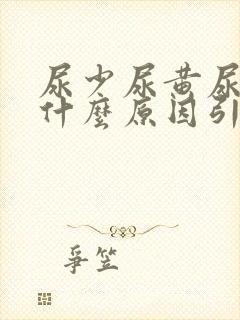 尿少尿黄尿
什麼原因引
爭笠